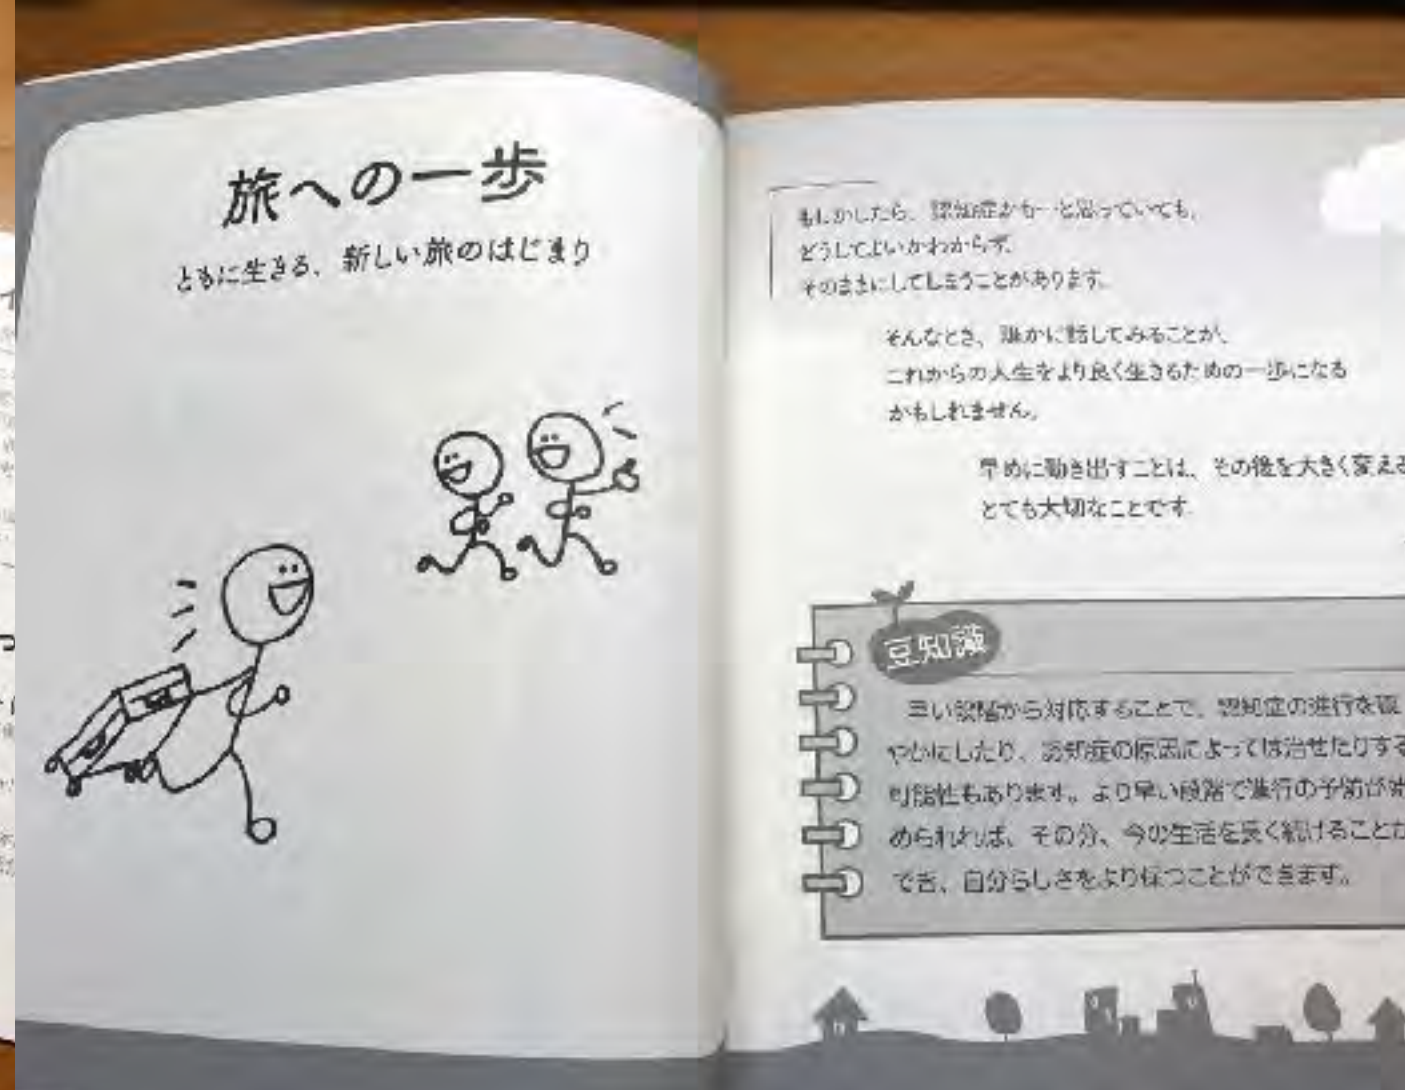 旅への一歩
ともに生きる、新しい旅のはじまり
もしかしたら、認知症かも…と思っていても、
どうしてよいかわからず、
そのままにしてしまうことがあります。
そんなとき、誰かに話してみることが、
これからの人生をより良く生きるための一歩になる
かもしれません。
早めに動き出すことは、その後を大きく変える
とても大切なことです。
豆知識
早い段階から対応することで、認知症の進行を緩
やかにしたり、認知症の原因によっては治せたりする
可能性もあります。より早い段階で進行の予防が始
められれば、その分、今の生活を長く続けることが
でき、自分らしさをより保つことができます。